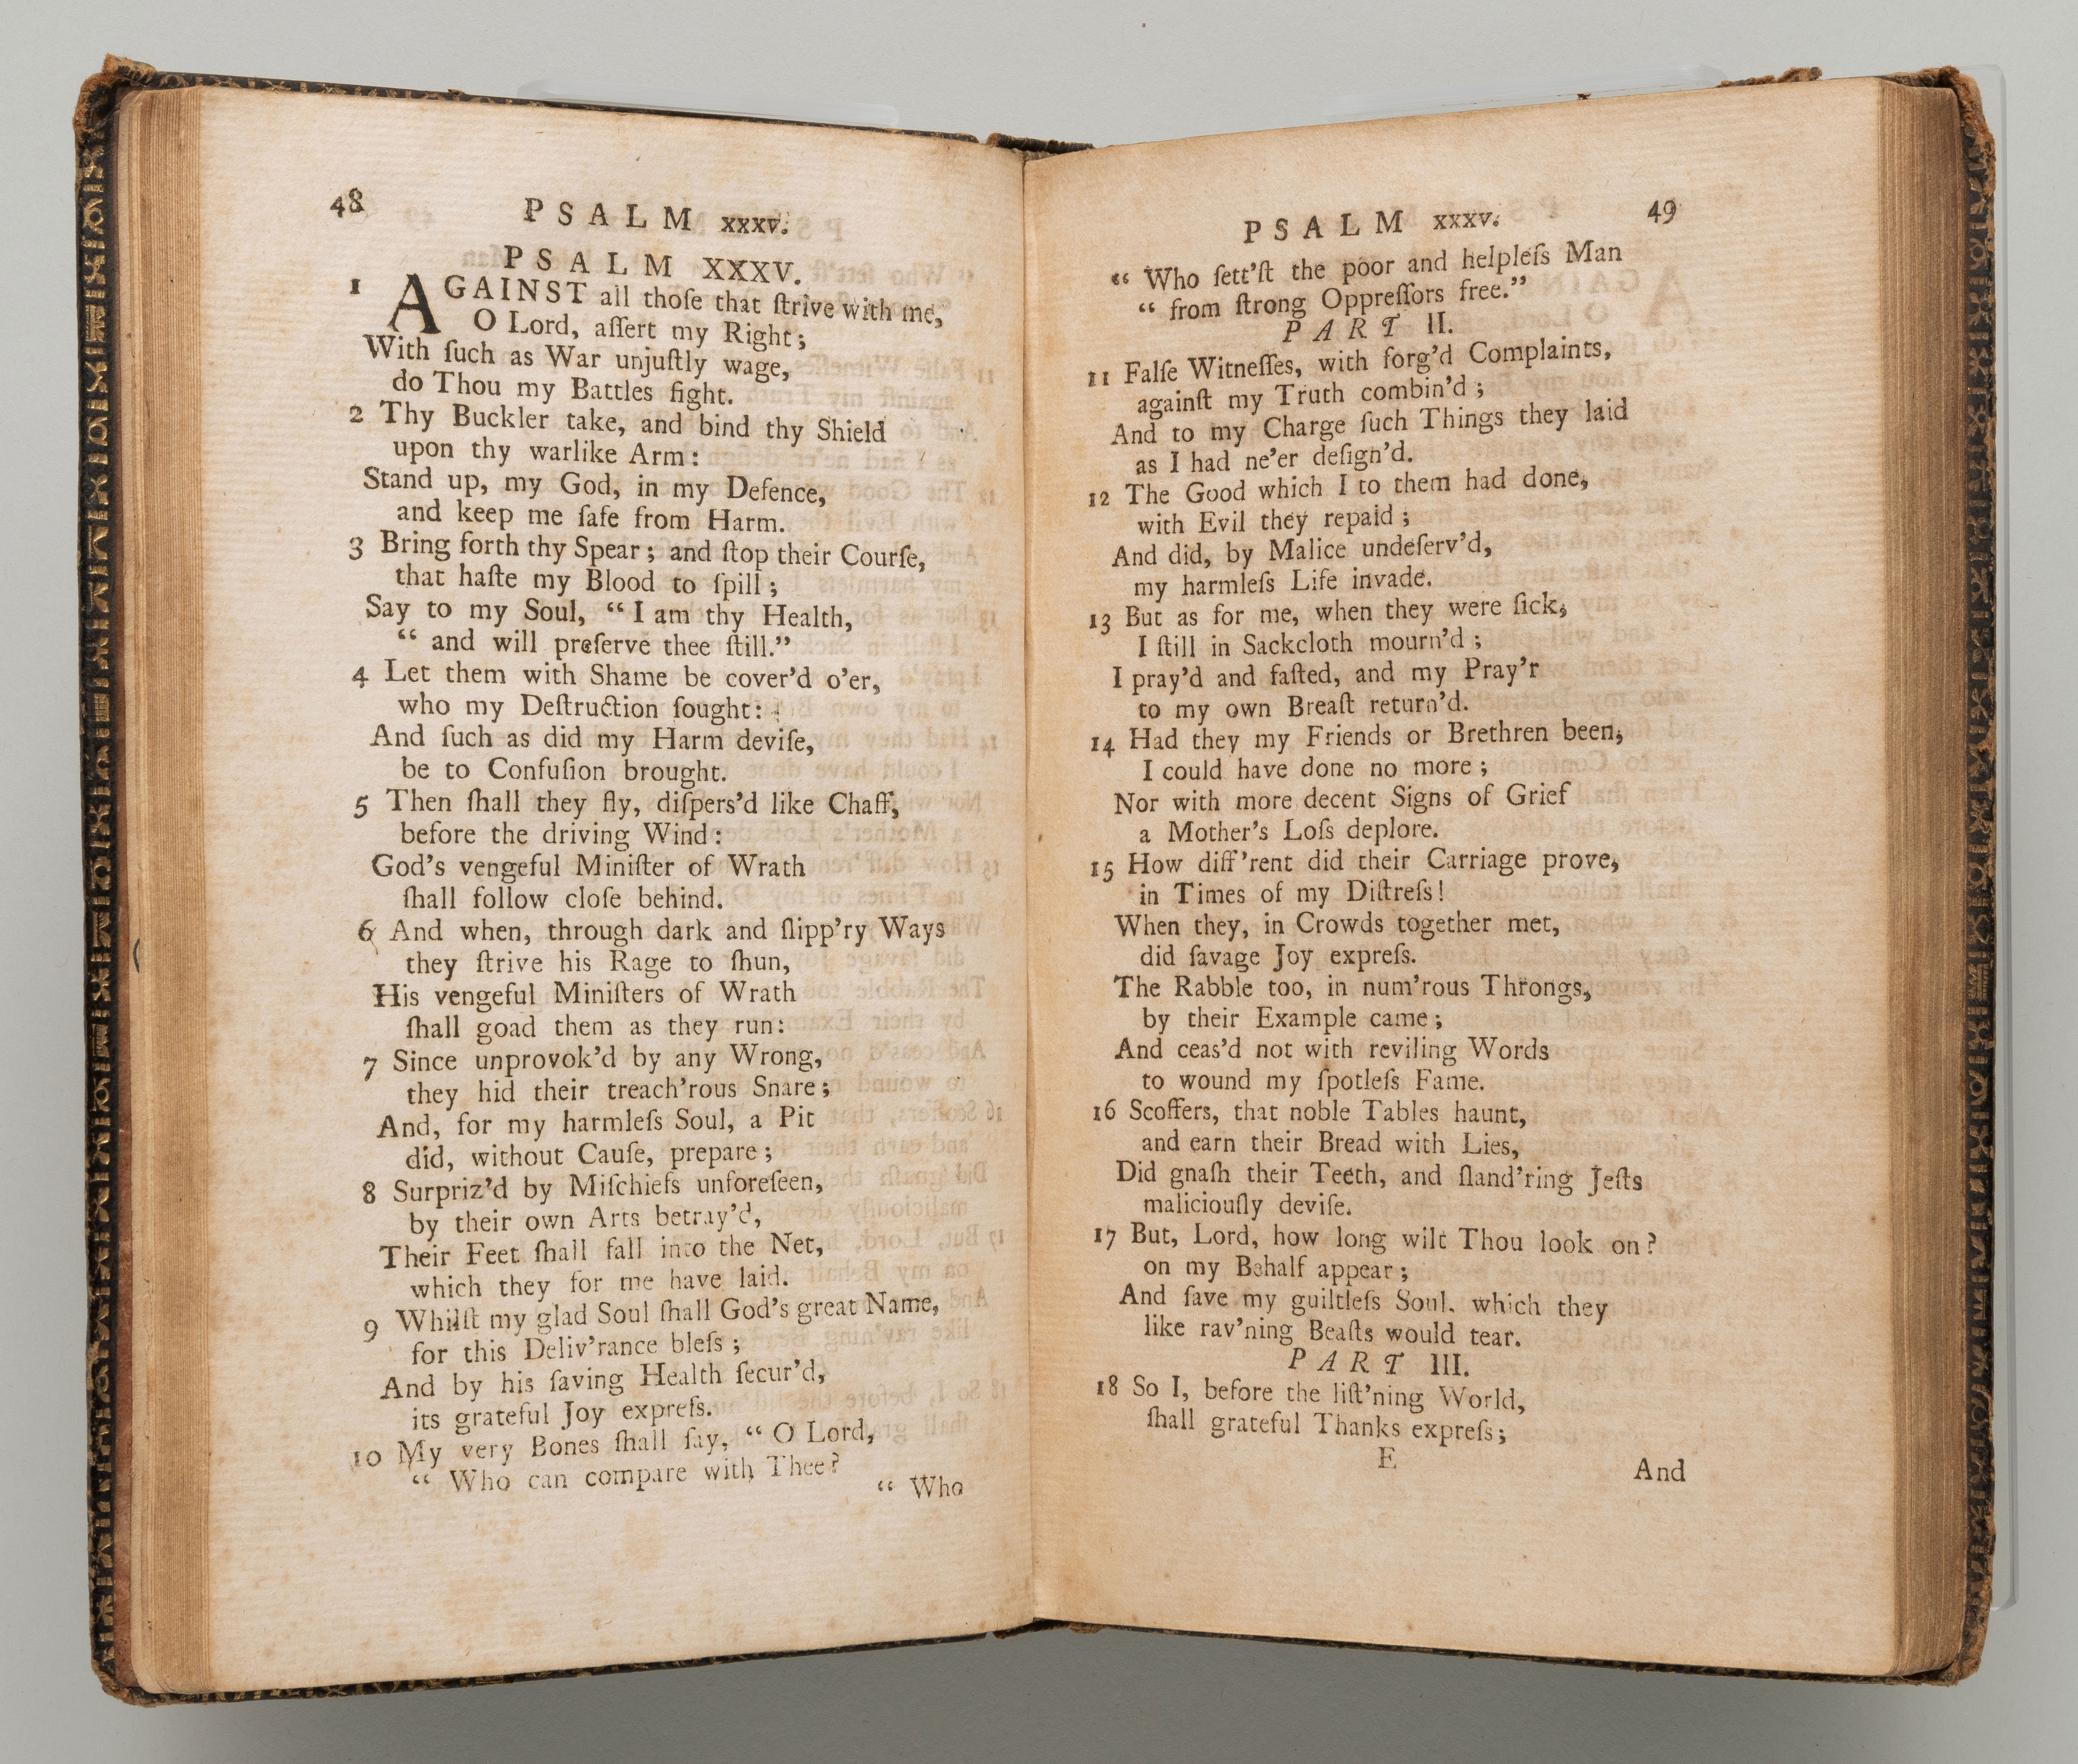 48
PSALM xxxv.
PSALM XXXV.
1 AGAINST all thoſe that ſtrive with me,
O Lord, aſſert my Right;
With ſuch as War unjuſtly wage,
do Thou my Battles fight.
2 Thy Buckler take, and bind thy Shield
upon thy warlike Arm:
Stand up, my God, in my Defence,
and keep me ſafe from Harm.
3 Bring forth thy Spear; and ſtop their Courſe,
that haſte my Blood to ſpill;
Say to my Soul, “ I am thy Health,
“ and will preſerve thee ſtill.”
4 Let them with Shame be cover’d o’er,
who my Deſtruction ſought:
And ſuch as did my Harm deviſe,
be to Confuſion brought.
5 Then ſhall they fly, diſpers’d like Chaff,
before the driving Wind:
God’s vengeful Miniſter of Wrath
ſhall follow cloſe behind.
6 And when, through dark and ſlipp’ry Ways
they ſtrive his Rage to ſhun,
His vengeful Miniſters of Wrath
ſhall goad them as they run:
7 Since unprovok’d by any Wrong,
they hid their treach’rous Snare;
And, for my harmleſs Soul, a Pit
did, without Cauſe, prepare;
8 Surpriz’d by Miſchiefs unforeſeen,
by their own Arts betray’d,
Their Feet ſhall fall into the Net,
which they for me have laid.
9 Whilſt my glad Soul ſhall God’s great Name,
for this Deliv’rance bleſs;
And by his ſaving Health ſecur’d,
its grateful Joy expreſs.
10 My very Bones ſhall ſay, “ O Lord,
“ Who can compare with Thee?
“ Who
PSALM xxxv.
49
“ Who ſett’ſt the poor and helpleſs Man
“ from ſtrong Oppreſſors free.”
PART II.
11 Falſe Witneſſes, with forg’d Complaints,
againſt my Truth combin’d;
And to my Charge ſuch Things they laid
as I had ne’er deſign’d.
12 The Good which I to them had done,
with Evil they repaid;
And did, by Malice undeſerv’d,
my harmleſs Life invade.
13 But as for me, when they were ſick,
I ſtill in Sackcloth mourn’d;
I pray’d and faſted, and my Pray’r
to my own Breaſt return’d.
14 Had they my Friends or Brethren been,
I could have done no more;
Nor with more decent Signs of Grief
a Mother’s Loſs deplore.
15 How diff’rent did their Carriage prove,
in Times of my Diſtreſs!
When they, in Crowds together met,
did ſavage Joy expreſs.
The Rabble too, in num’rous Throngs,
by their Example came;
And ceas’d not with reviling Words
to wound my ſpotleſs Fame.
16 Scoffers, that noble Tables haunt,
and earn their Bread with Lies,
Did gnaſh their Teeth, and ſland’ring Jeſts
maliciouſly deviſe.
17 But, Lord, how long wilt Thou look on?
on my Behalf appear;
And ſave my guiltleſs Soul, which they
like rav’ning Beaſts would tear.
PART III.
18 So I, before the liſt’ning World,
ſhall grateful Thanks expreſs;
E
And